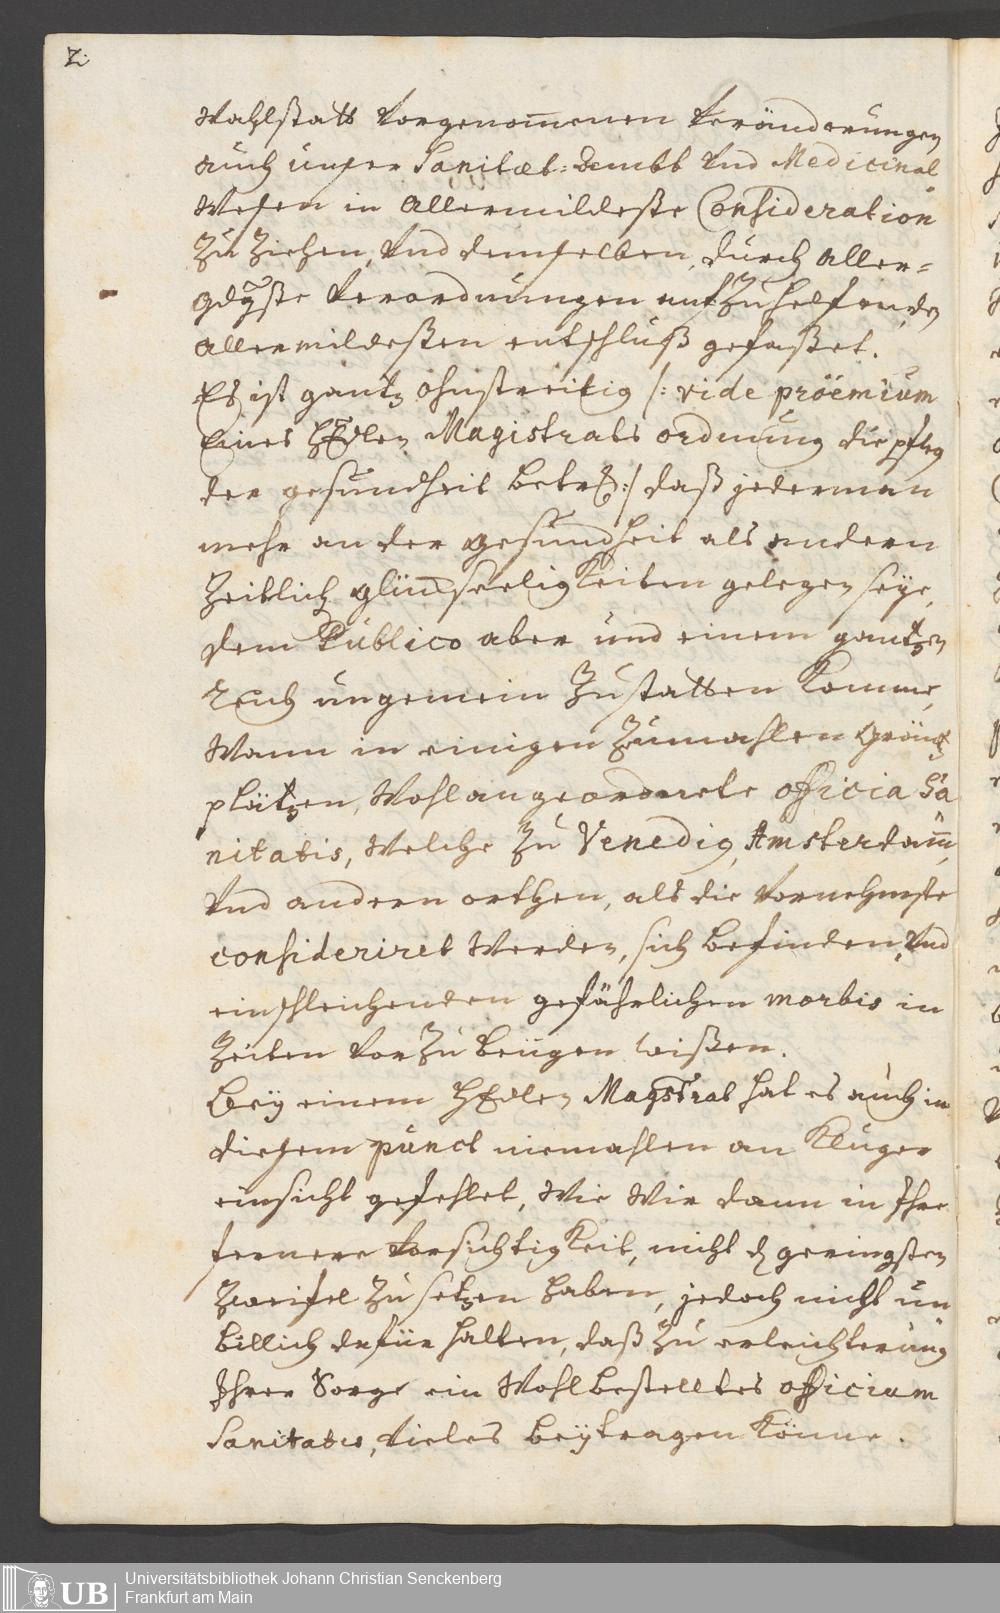 2.
Wahlstatt Vorgenom̅enen Veränderungen
auch unser Sanitæt-Ambt Vnd Medicinal
Wesen in Allermildeste Consideration
Zu Ziehen, Vnd demselben, durch Aller-
gdgste Verordnungen aufzuhelfen, den
Allermildesten entschluß gefasset.
Es ist gantz ohnstreitig /: vide pröemium
Eines HEdlen Magistrats ordnung die pfleg
der gesundheit betr: :/ daß jederman
mehr an der gesundheit als andern
Zeitlich glückseeligkeiten gelegen seye,
dem Publico aber und einem gantzen
Reich ungemein Zustatten Komme,
Wann in einigen Zumahlen Gräntz
plätzen, Wohl angeordnete officia Sa
nitatis, Welche Zu Venedig, Amsterdam̅,
Vnd andern orthen, als die Vornehmste
consideriret Werden, sich befinden, Vnd
einschleichenden gefährlichen morbis in
Zeiten VorZubeugen wißen.
Bey einem HEdlen Magistrat hat es auch in
diesem punct niemahlen an Kluger
einsicht gefehlet, Wie Wir dann in Ihre
fernere Vorsichtigkeit, nicht d. geringsten
Zweifel Zu setzen haben, jedoch nicht un
billich dafür halten, daß Zu erleichterung
Ihrer Sorge ein Wohlbestelltes officium
Sanitatis, Vieles beytragen Könne.
UB
Universitätsbibliothek Johann Christian Senckenberg
Frankfurt am Main